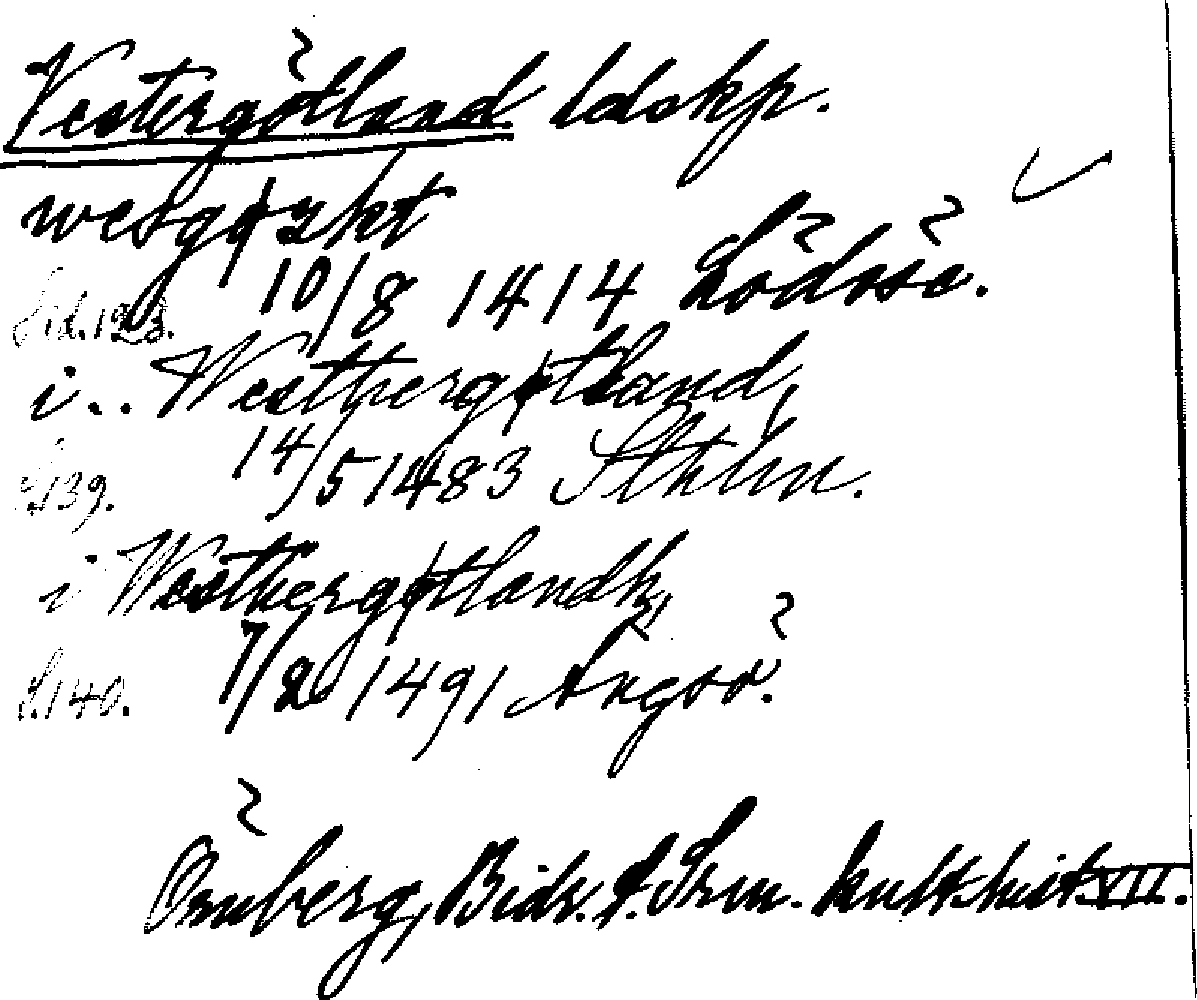 Vestergötland ldskp.
wesgøzkt
Sid. 123. 10/8 1414 Lödöse.
i.. Westhergøtland,
S. 139. 14/5 1483 Sthlm.
i Westhergøtlandh,
S. 140. 7/2 1491 Ängsö.
Örnberg, Bidr. t. Srm. kulthist XII.